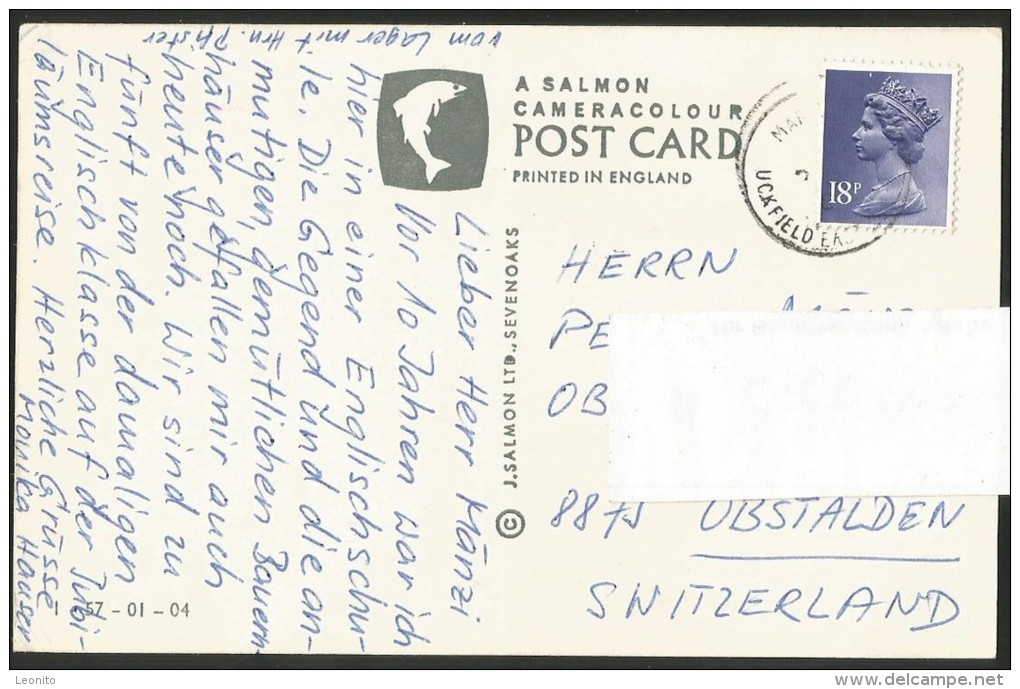 A SALMON
CAMERACOLOUR
POST CARD
PRINTED IN ENGLAND
J. SALMON LTD., SEVENOAKS ©
UCKFIELD
18P
HERRN
PE
OB
8875 OBSTALDEN
SWITZERLAND
Lieber Herr Mänzi
Vor 10 Jahren war ich
hier in einer Englischschu-
le. Die Gegend und die an-
mutigen, gemütlichen Bauern-
häuser gefallen mir auch
heute noch. Wir sind zu
fünft von der damaligen
Englischklasse auf der Jubi-
läumsreise. Herzliche Grüsse
Monika Hauser
vom Lager mit Hrn. Pfister
57-01-04
Leonito
delcampe.net